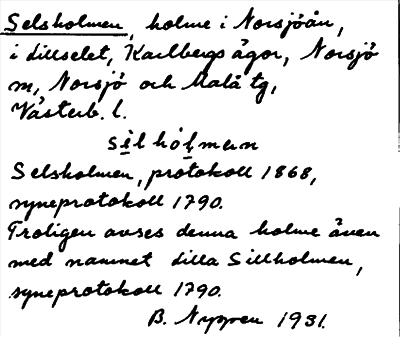 Selsholmen, holme i Norsjöån,
i dillselet, Karlbergs ägor, Norsjö
sn, Norsjö och Malå tg,
Västerb. l.
silhólmen
Selsholmen, protokoll 1868,
syneprotokoll 1790.
Troligen avses denna holme även
med namnet dilla Sillholmen,
syneprotokoll 1790.
B. Nygren 1931.